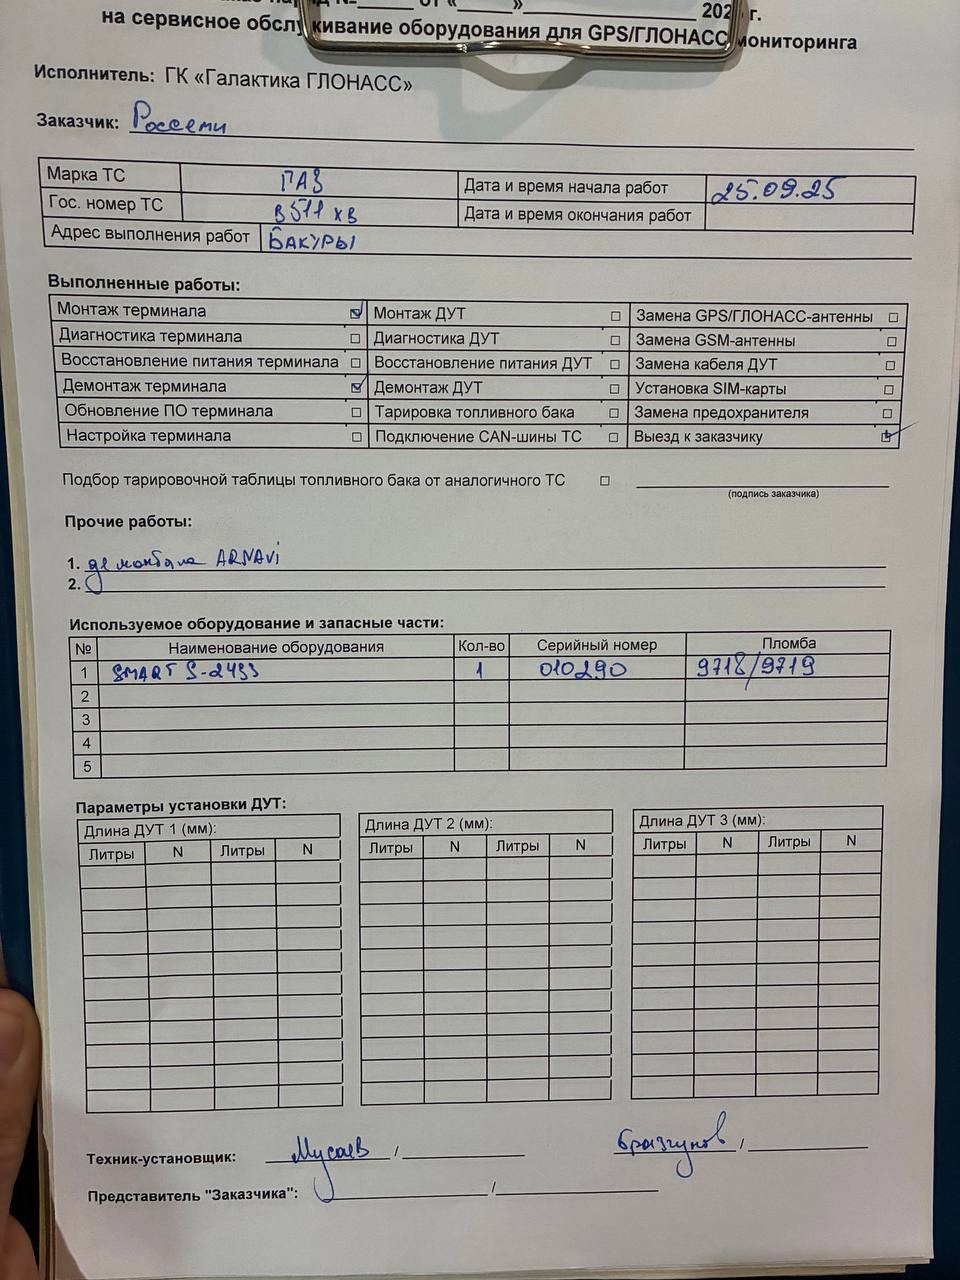 на сервисное обслуживание оборудования для GPS/ГЛОНАСС мониторинга
Исполнитель: ГК «Галактика ГЛОНАСС»
Заказчик: Россети
Марка ТС ГАЗ Дата и время начала работ 25.09.25
Гос. номер ТС в 511 хв Дата и время окончания работ
Адрес выполнения работ БАКУРЫ
Выполненные работы:
Монтаж терминала ☑ Монтаж ДУТ □ Замена GPS/ГЛОНАСС-антенны □
Диагностика терминала □ Диагностика ДУТ □ Замена GSM-антенны □
Восстановление питания терминала □ Восстановление питания ДУТ □ Замена кабеля ДУТ □
Демонтаж терминала ☑ Демонтаж ДУТ □ Установка SIM-карты □
Обновление ПО терминала □ Тарировка топливного бака □ Замена предохранителя □
Настройка терминала □ Подключение CAN-шины ТС □ Выезд к заказчику ☑
Подбор тарировочной таблицы топливного бака от аналогичного ТС □
(подпись заказчика)
Прочие работы:
1. ARNAVi
2.
Используемое оборудование и запасные части:
№ Наименование оборудования Кол-во Серийный номер Пломба
1 SMART S-2433 1 010290 9718/9719
2
3
4
5
Параметры установки ДУТ:
Длина ДУТ 1 (мм): Длина ДУТ 2 (мм): Длина ДУТ 3 (мм):
Литры N Литры N Литры N Литры N Литры N Литры N
Техник-установщик: Мусаев / Бразгунов /
Представитель "Заказчика": /